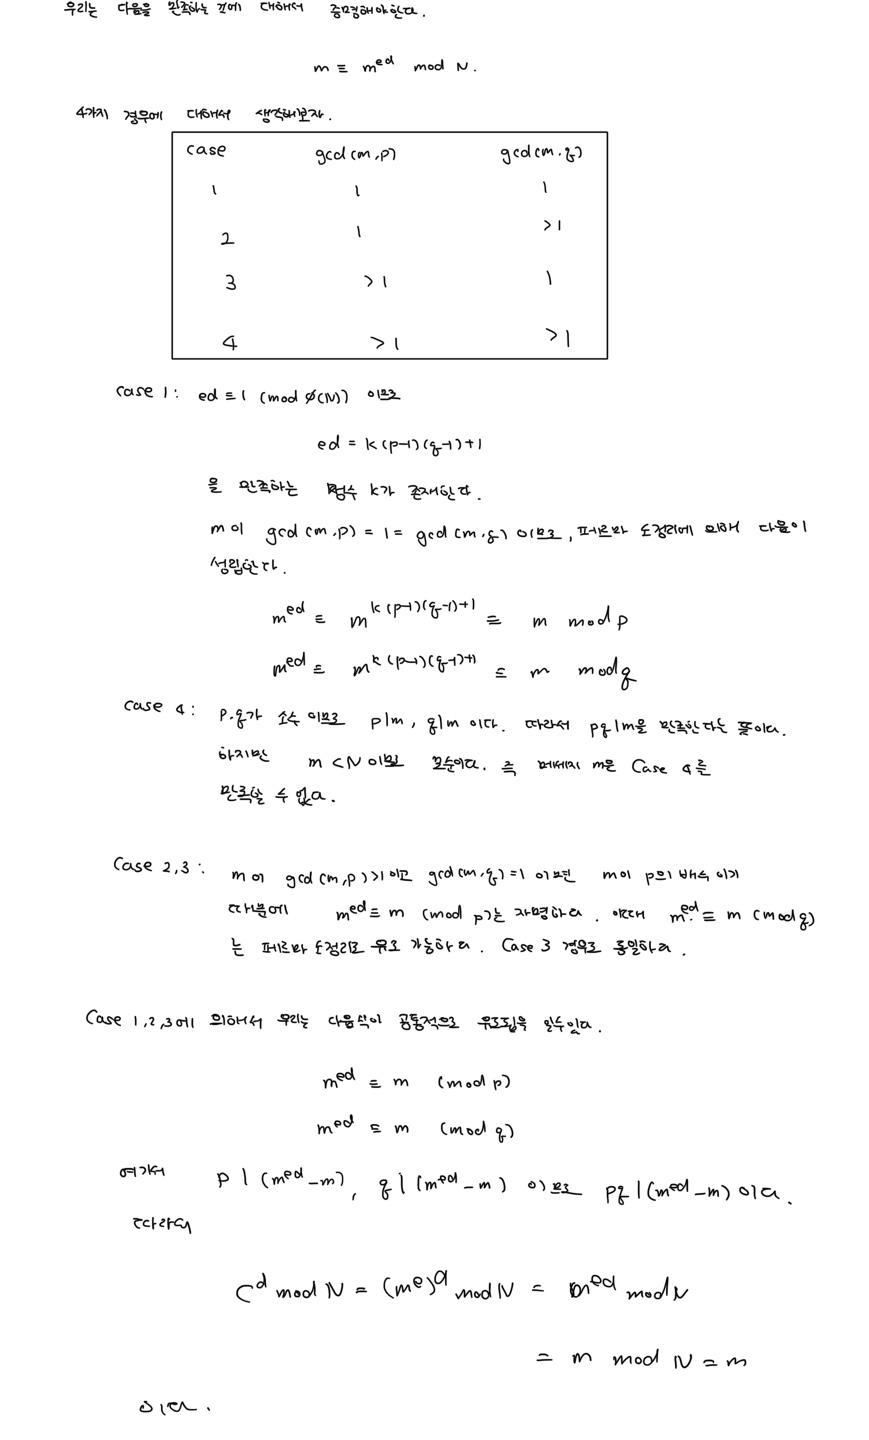 우리는 다음을 만족하는 것에 대해서 증명해야한다.
m ≡ m^ed mod N.
4가지 경우에 대해서 생각해보자.
case gcd(m,p) gcd(m,q)
1 1 1
2 1 >1
3 >1 1
4 >1 >1
Case 1: ed ≡ 1 (mod ϕ(N)) 이므로
ed = k(p-1)(q-1)+1
을 만족하는 정수 k가 존재한다.
m이 gcd(m,p) = 1 = gcd(m,q) 이므로, 페르마 소정리에 의해 다음이
성립한다.
m^ed ≡ m^k(p-1)(q-1)+1 ≡ m mod p
m^ed ≡ m^k(p-1)(q-1)+1 ≡ m mod q
Case 4: p,q가 소수 이므로 p|m, q|m 이다. 따라서 pq|m을 만족한다는 뜻이다.
하지만 m < N 이면 모순이다. 즉 메세지 m은 Case 4를
만족할 수 없다.
Case 2,3: m이 gcd(m,p)>1 이고 gcd(m,q)=1 이면 m이 p의 배수 이기
때문에 m^ed ≡ m (mod p)는 자명하다. 이때 m^ed ≡ m (mod q)
는 페르마 소정리로 유도 가능하다. Case 3 경우도 동일하다.
Case 1,2,3에 의해서 우리는 다음식이 공통적으로 유도됨을 알수있다.
m^ed ≡ m (mod p)
m^ed ≡ m (mod q)
여기서 p|(m^ed-m), q|(m^ed-m) 이므로 pq|(m^ed-m) 이다.
따라서
C^d mod N = (m^e)^d mod N = m^ed mod N
= m mod N = m
이다.